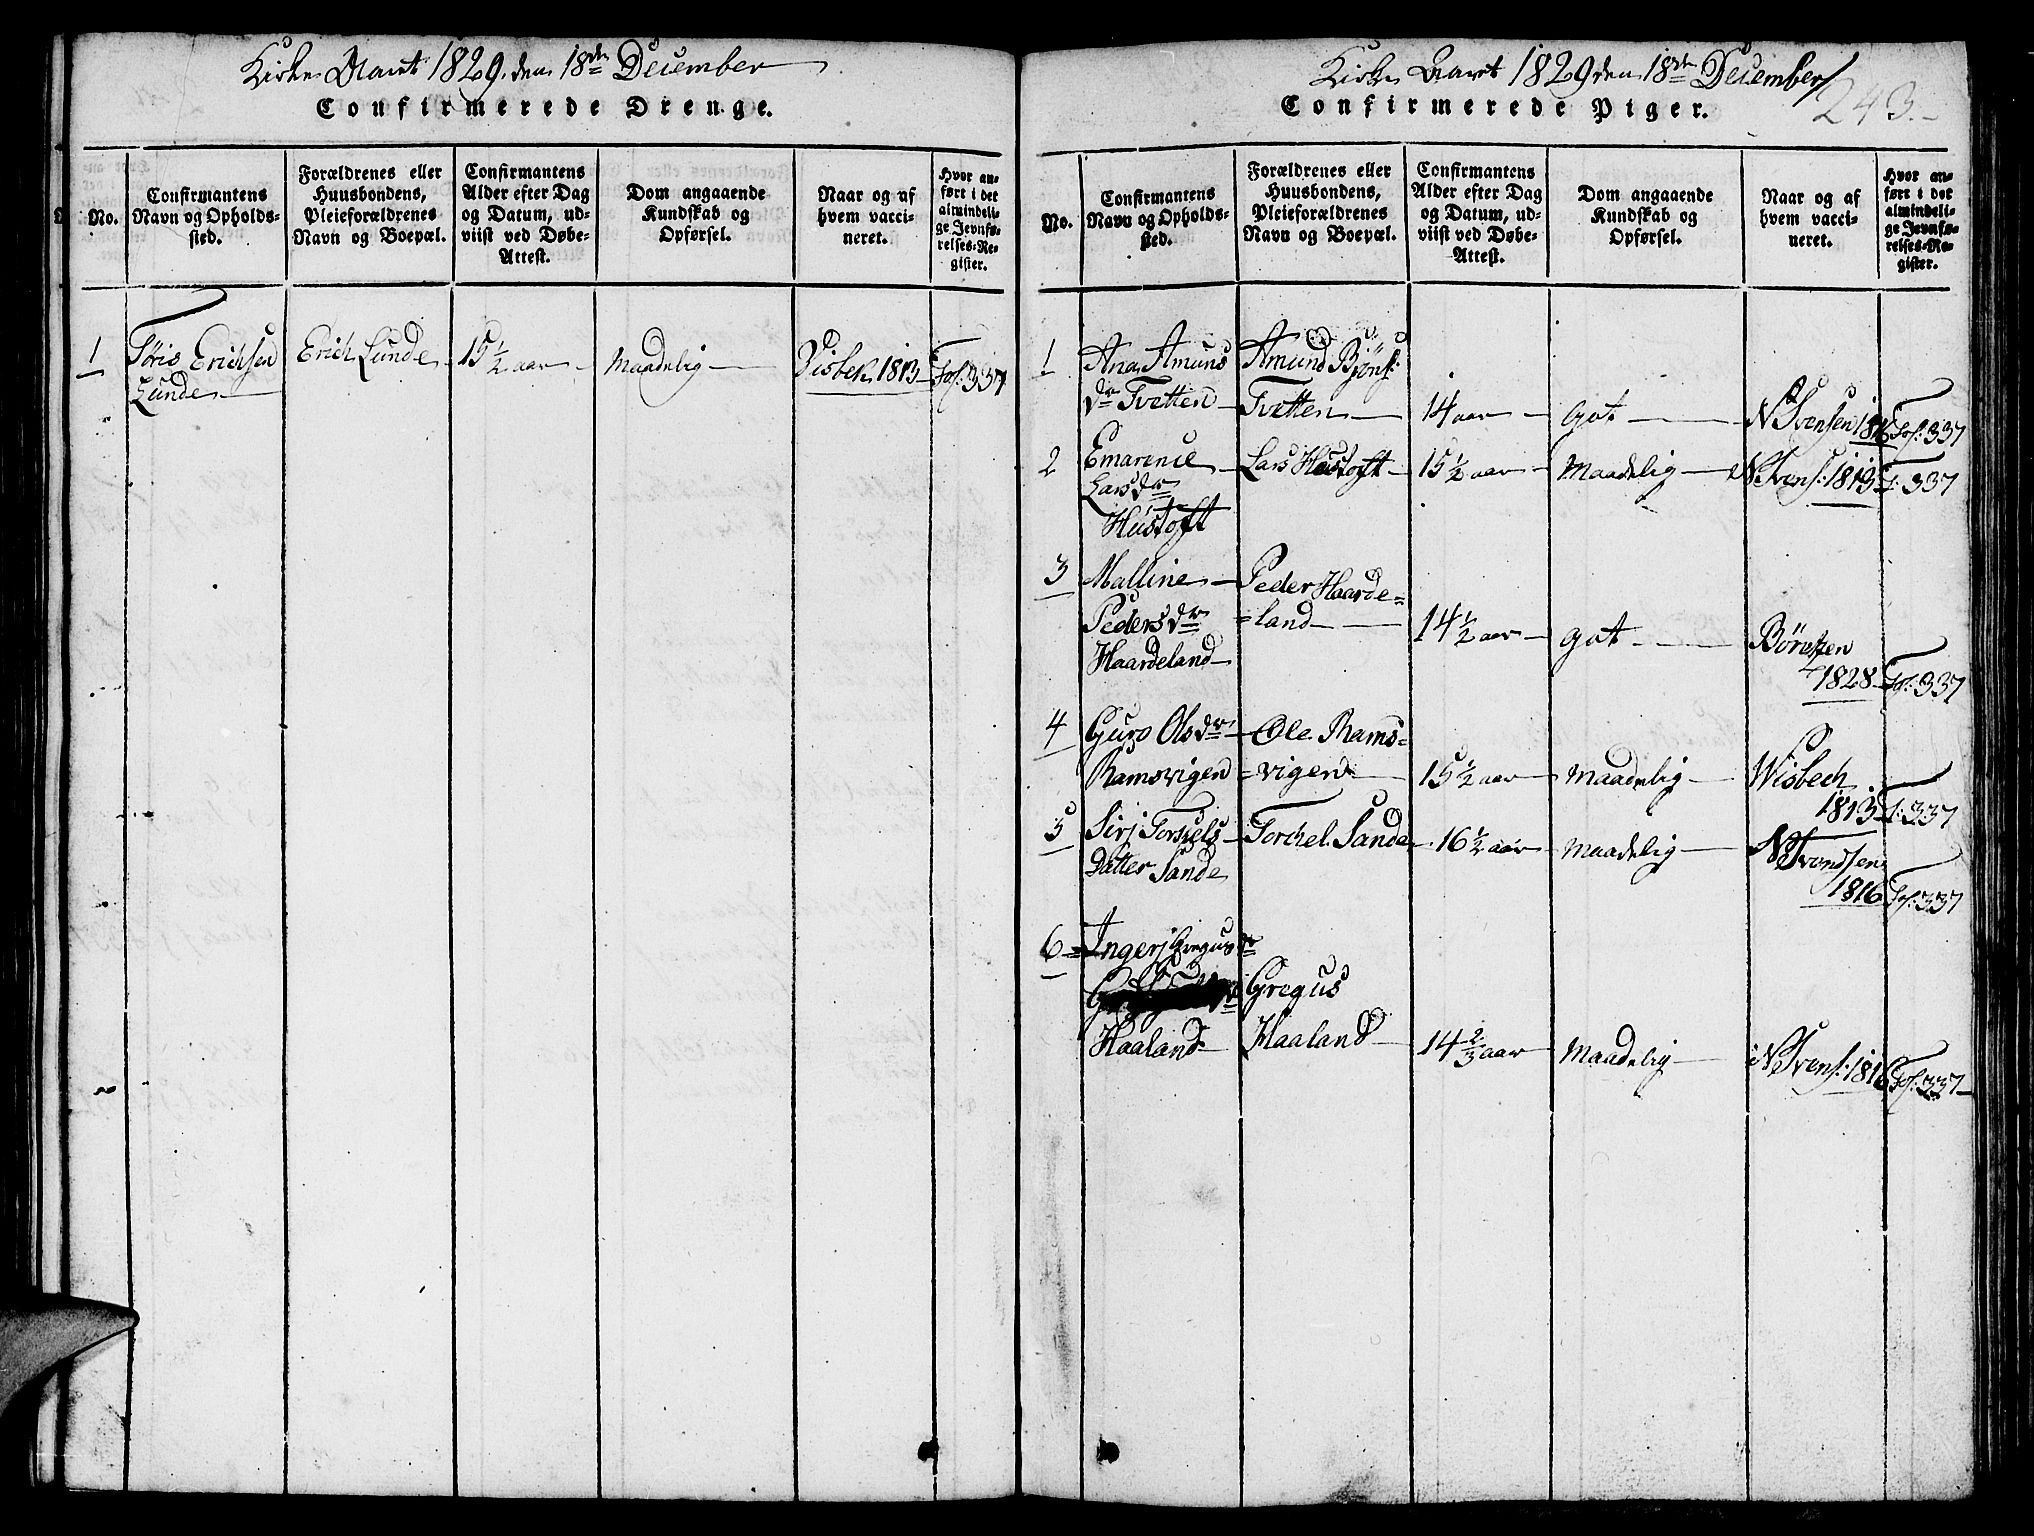 Kirke Aaret 1829. den 18de December
Confirmerede Drenge.
No.
Confirmantens
Navn og Opholds-
sted.
Forældrenes eller
Huusbondens,
Pleieforældrenes
Navn og Boepæl.
Confirmantens
Alder efter Dag
og Datum, ud-
viist ved Døbe-
Attest.
Dom angaaende
Kundskab og
Opførsel.
Naar og af
hvem vacci-
neret.
Hvor an-
ført i det
almindeli-
ge Jevnfø-
relses-Re-
gister.
1 Tøris Erichsen Erich Lunde 15 1/2 aar Maadelig Visbek 1813 Fol: 337
Lunde
Kirke Aaret 1829 den 18de December
243.
Confirmerede Piger.
No.
Confirmantens
Navn og Opholds-
sted.
Forældrenes eller
Huusbondens,
Pleieforældrenes
Navn og Boepæl.
Confirmantens
Alder efter Dag
og Datum, ud-
viist ved Døbe-
Attest.
Dom angaaende
Kundskab og
Opførsel.
Naar og af
hvem vacci-
neret.
Hvor an-
ført i det
almindeli-
ge Jevnfø-
relses-Re-
gister.
1 Ana Amuns Amund Bjøns:
dr Tvetten Tvetten 14 aar got N Svensen 1816 Fol: 337
2 Emarencie Lars Hustoft 15 1/2 aar Maadelig N Svens: 1813 F: 337
Larsdr
Hustoft
3 Malline Peder Haarde=
Pedersdr =land 14 1/2 aar got
Haardeland 1828 Fol: 337
4 Guro Olsdr Ole Rams=
Ramsvigen =vigen 15 1/2 aar Maadelig Wisbech
1813 F: 337
5 Sirj Torkels Torchel Sande 16 1/2 aar Maadelig N Svendsen
Datter Sande 1816 Fol: 337
6 Ingerj Gregus dr
Gregus
Haaland Haaland 14 2/3 aar Maadelig N Svens: 1816 Fol: 337